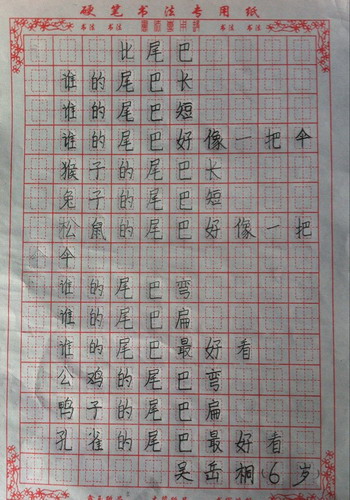 硬笔书法专用纸
书法 书法 书法 书法
比尾巴
谁的尾巴长
谁的尾巴短
谁的尾巴好像一把伞
猴子的尾巴长
兔子的尾巴短
松鼠的尾巴好像一把
伞
谁的尾巴弯
谁的尾巴扁
谁的尾巴最好看
公鸡的尾巴弯
鸭子的尾巴扁
孔雀的尾巴最好看
吴岳桐(6岁)